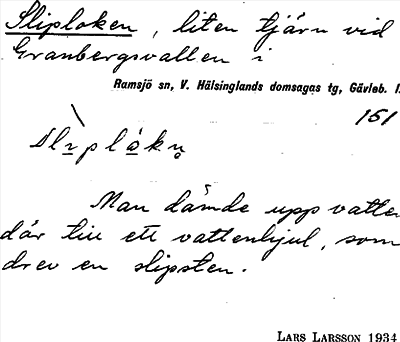 Sliploken, liten tjärn vid
Granbergsvallen i
Ramsjö sn, V. Hälsinglands domsagas tg, Gävleb. l.
151
Sliplåkn̥
Man dämde upp vatten
där till ett vattenhjul, som
drev en slipsten.
LARS LARSSON 1934